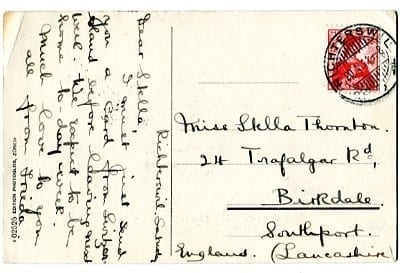 Richterswil, Sunday
Dear Stella,
I must just send
you a card from Switzer-
land before leaving next
week. We expect to be
home to-day week.
Much love to you
all from Frieda
Miss Stella Thornton.
24 Trafalgar Rd,
Birkdale.
Southport.
England. (Lancashire)
RICHTERSWIL
EDITION PHOTOGLOB, ZÜRICH